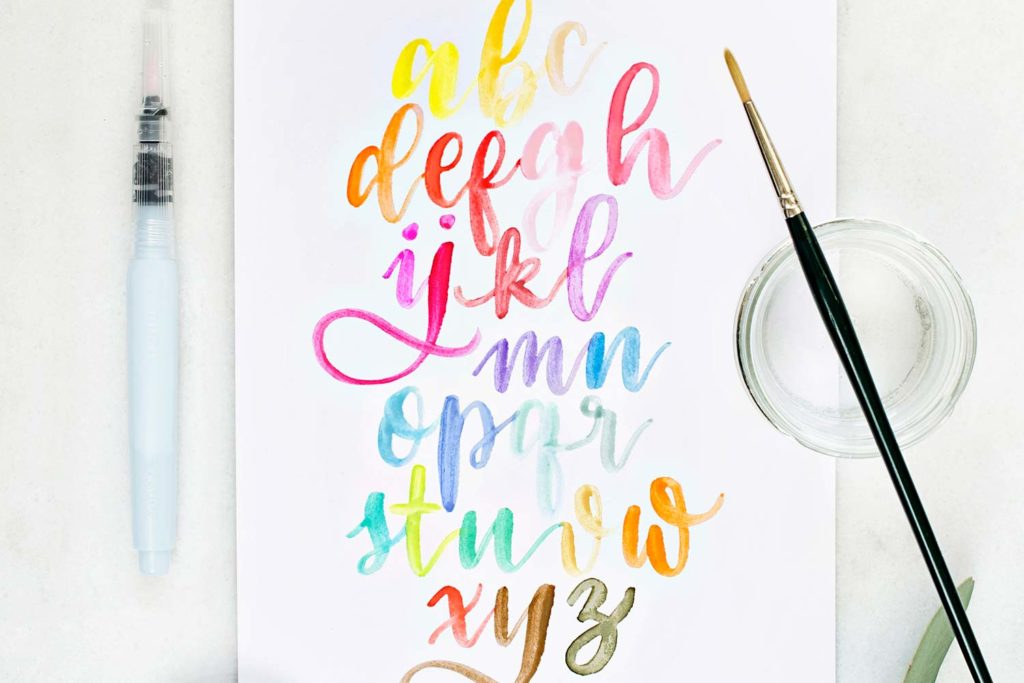 abc
defgh
ijkl
mn
opqr
stuvw
xyz